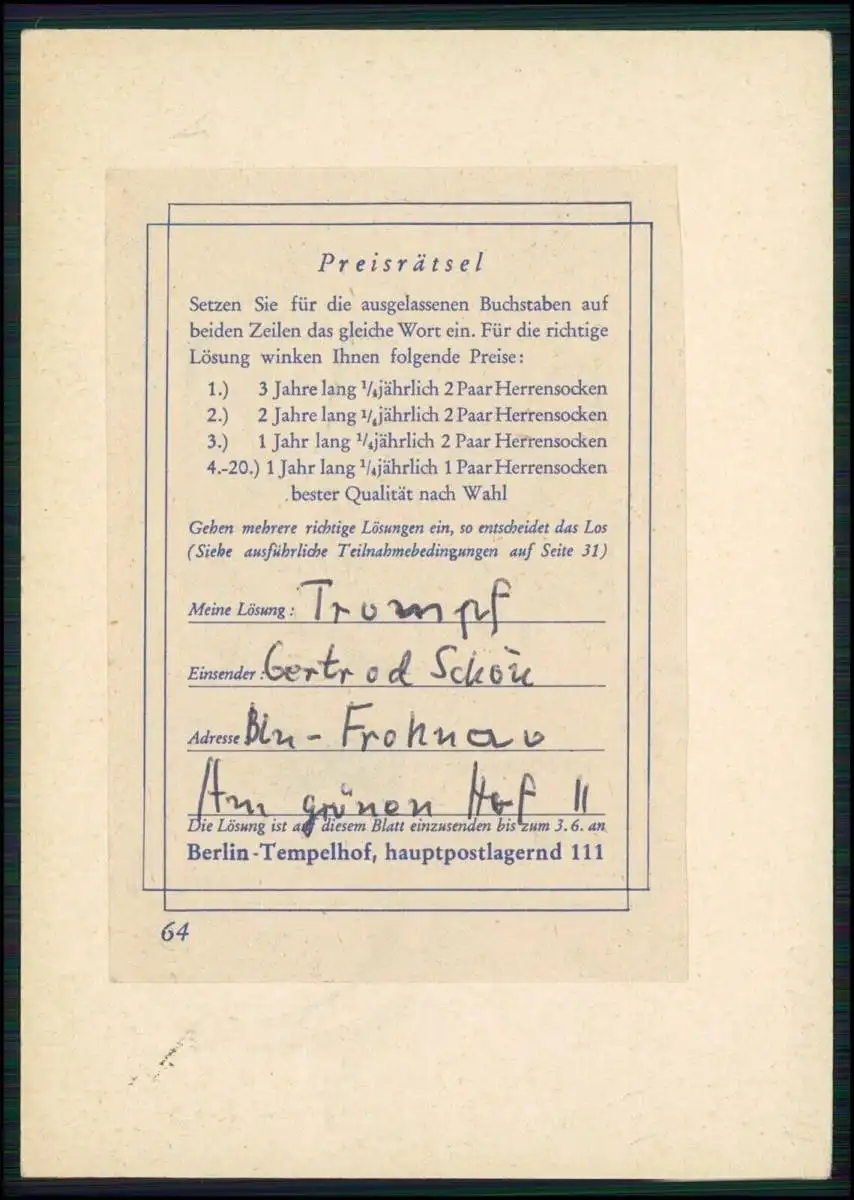 Preisrätsel
Setzen Sie für die ausgelassenen Buchstaben auf
beiden Zeilen das gleiche Wort ein. Für die richtige
Lösung winken Ihnen folgende Preise:
1.) 3 Jahre lang ¼jährlich 2 Paar Herrensocken
2.) 2 Jahre lang ¼jährlich 2 Paar Herrensocken
3.) 1 Jahr lang ¼jährlich 2 Paar Herrensocken
4.-20.) 1 Jahr lang ¼jährlich 1 Paar Herrensocken
bester Qualität nach Wahl
Gehen mehrere richtige Lösungen ein, so entscheidet das Los
(Siehe ausführliche Teilnahmebedingungen auf Seite 31)
Meine Lösung: Trumpf
Einsender: Gertrud Schön
Adresse Bln - Frohnau
Am grünen Hof 11
Die Lösung ist auf diesem Blatt einzusenden bis zum 3. 6. an
Berlin-Tempelhof, hauptpostlagernd 111
64